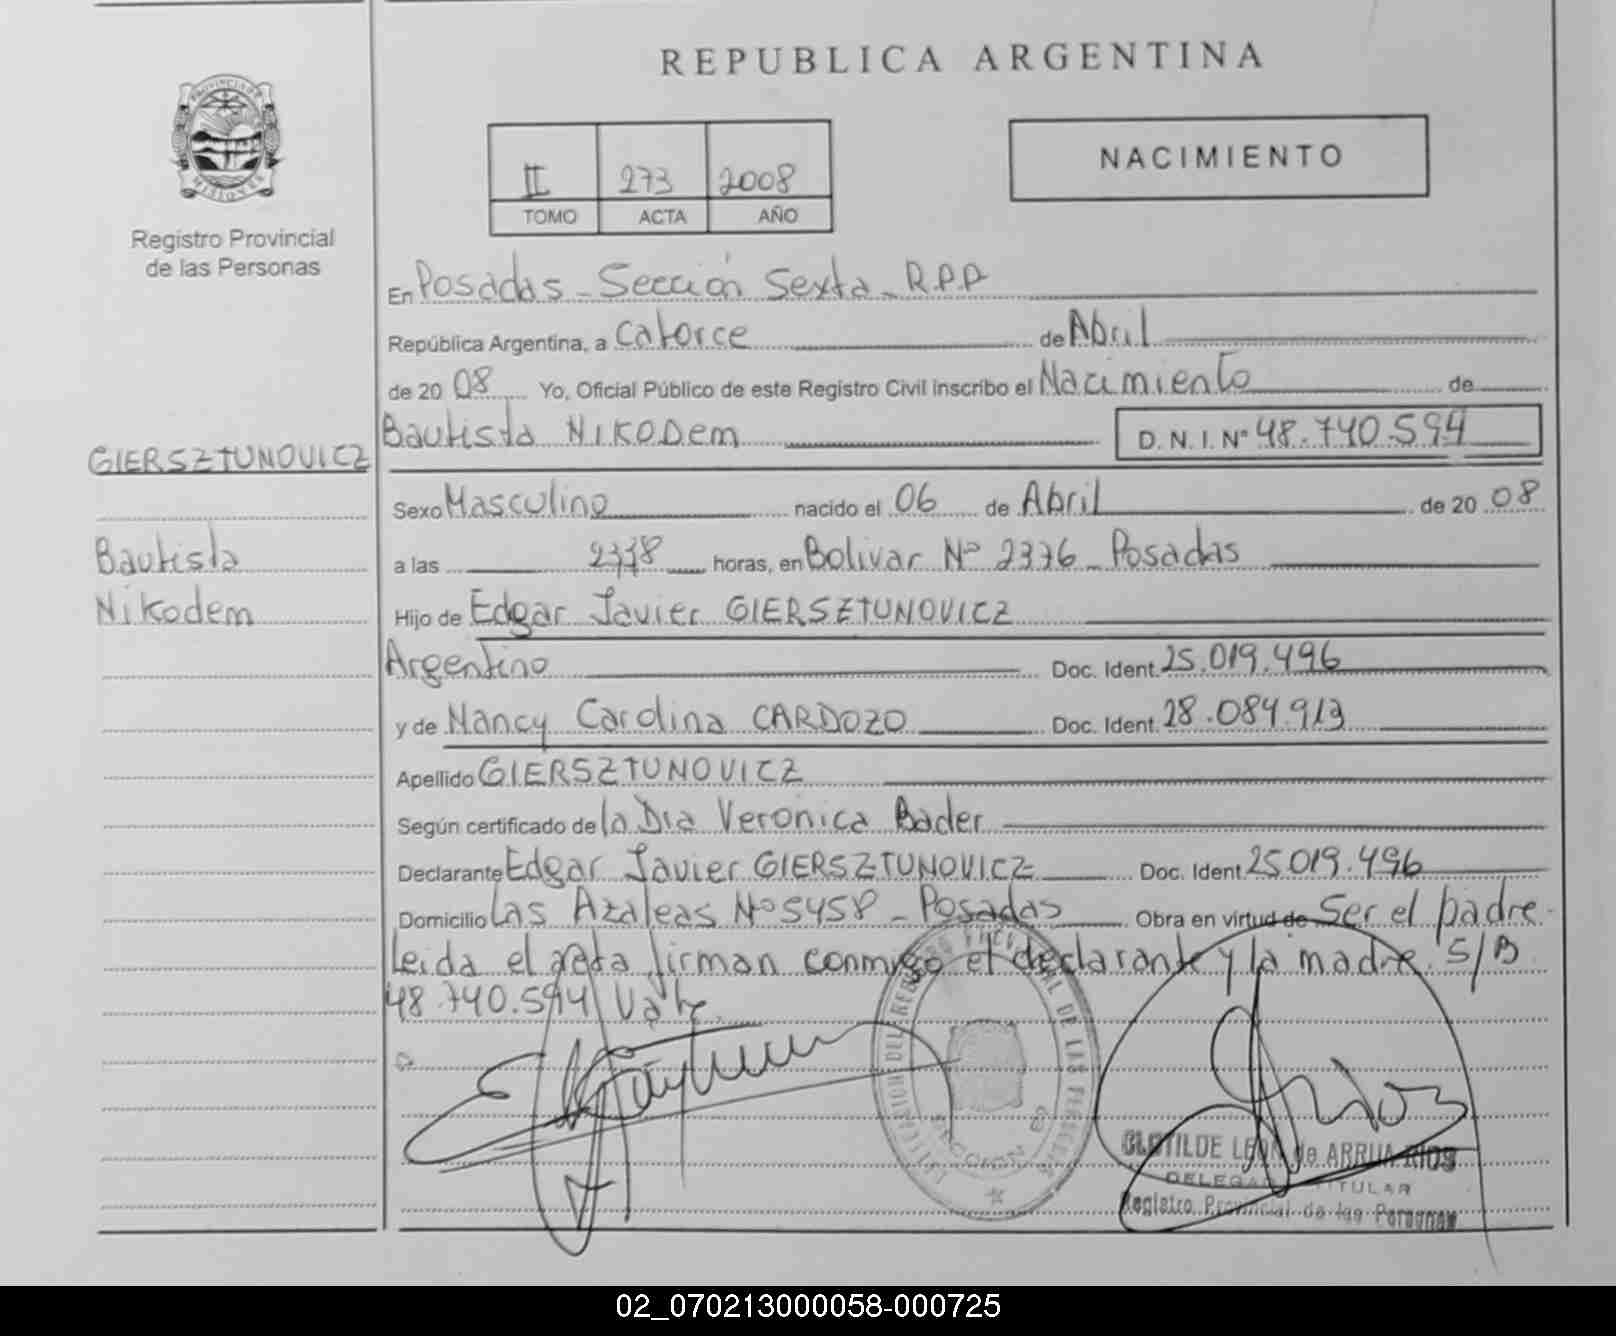 REPUBLICA ARGENTINA
PROVINCIA DE
MISIONES
Registro Provincial
de las Personas
II 273 2008
TOMO ACTA AÑO
NACIMIENTO
En Posadas - Sección Sexta - R.P.P
República Argentina, a Catorce de Abril
de 20 08 Yo, Oficial Público de este Registro Civil inscribo el Nacimiento de
Bautista NIKODEM D.N.I. Nº 48.740.594
GIERSZTUNOVICZ
Bautista
Nikodem
Sexo Masculino nacido el 06 de Abril de 20 08
a las horas, en Bolivar Nº 2376 - Posadas
Hijo de Edgar Javier GIERSZTUNOVICZ
Argentino Doc. Ident. 25.019.496
y de Nancy Carolina CARDOZO Doc. Ident. 28.084.913
Apellido GIERSZTUNOVICZ
Según certificado de la Dra Veronica Bader
Declarante Edgar Javier GIERSZTUNOVICZ Doc. Ident 25.019.496
Domicilio Las Azaleas Nº 5458 - Posadas Obra en virtud de Ser el padre.
Leida el acta firman conmigo el declarante y la madre. S/B
48.740.594 Vale.
DIRECCION DEL REGISTRO PROVINCIAL DE LAS PERSONAS
SECCION 6ª
CLOTILDE LEON de ARRUA RIOS
DELEGADA TITULAR
Registro Provincial de las Personas
02_070213000058-000725